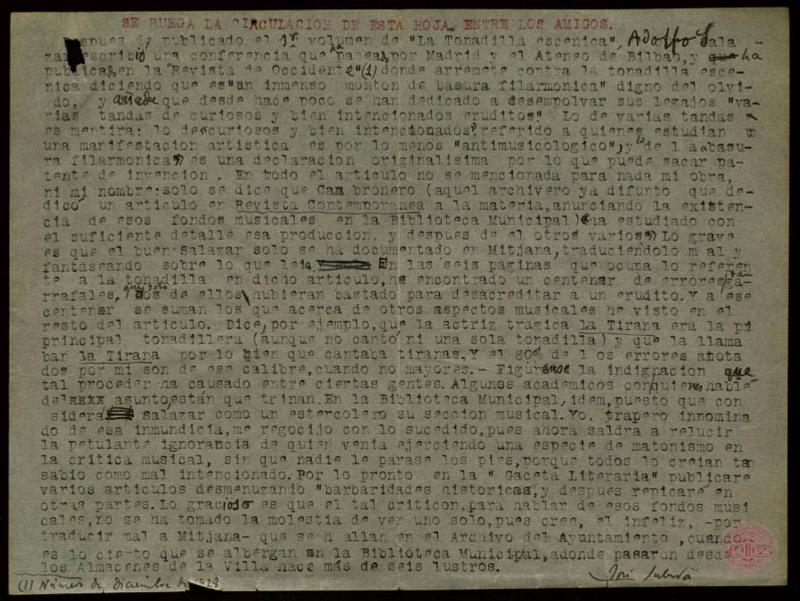 SE RUEGA LA CIRCULACION DE ESTA HOJA ENTRE LOS AMIGOS.
Despues de publicado el 1r volumen de "La Tonadilla escenica", Adolfo Sala-
zar escribió una conferencia que paseó por Madrid y el Ateneo de Bilbao, y ha
publicado en la Revista de Occidente" (1) donde arremete contra la tonadilla esce-
nica diciendo que es "un inmenso monton de basura filarmonica" digno del olvi-
do, y añade que desde hace poco se han dedicado a desempolvar sus legajos "va-
rias tandas de curiosos y bien intencionados eruditos" Lo de varias tandas
es mentira: lo de "curiosos y bien intencionados" referido a quienes estudian
una manifestacion artistica es por lo menos "antimusicologico", y lo de l a "basu-
ra filarmonica" es una declaracion originalisima por lo que puede sacar pa-
tente de invencion. En todo el articulo no se mencionada para nada mi obra,
ni mi nombre: solo se dice que Cam bronero (aquel archivero ya difunto que de-
dicó un articulo en Revista Contemporanea a la materia, anunciando la existen-
cia de esos fondos musicales en la Biblioteca Municipal) "ha estudiado con
el suficiente detalle esa produccion, y despues de el otros varios") Lo grave
es que el buen Salazar solo se ha documentado en Mitjana, traduciendolo m al y
fantaseando sobre lo que leia En las seis paginas que ocupa lo referen
te a la tonadilla en dicho articulo, he encontrado un centenar de errores tan ga-
rrafales, que solo dos de ellos hubieran bastado para desacreditar a un erudito. Y a ese
centenar se suman los que acerca de otros aspectos musicales he visto en el
resto del articulo. Dice, por ejemplo, que la actriz tragica La Tirana era la pri
principal tonadillera (aunque no cantó ni una sola tonadilla) y que la llama
ban la Tirana por lo bien que cantaba tiranas. Y el 80% de l os errores anota
dos por mi son de ese calibre, cuando no mayores.- Figurense la indignacion que
tal proceder ha causado entre ciertas gentes. Algunos academicos con quienes hable
del xxxx asunto, estan que trinan. En la Biblioteca Municipal, idem, puesto que con
sidera Salazar como un estercolero su seccion musical. Yo, trapero innomina
do de esa inmundicia, me regocijo con lo sucedido, pues ahora saldrá a relucir
la petulante ignorancia de quien venia ejerciendo una especie de matonismo en
la critica musical, sin que nadie le parase los pies, porque todos lo creian tan
sabio como mal intencionado. Por lo pronto en la " Gaceta Literaria" publicare
varios articulos desmenuzando "barbaridades historicas", y despues repicare en
otras partes. Lo gracioso es que el tal criticon, para hablar de esos fondos musi
cales, no se ha tomado la molestia de ver uno solo, pues cree, el infeliz, -por
traducir mal a Mitjana- que se h allan en el Archivo del Ayuntamiento, cuando
es lo cierto que se albergan en la Biblioteca Municipal, adonde pasaron desde
los Almacenes de la Villa hace más de seis lustros.
(1) Número de Diciembre de 1928
José Subirá